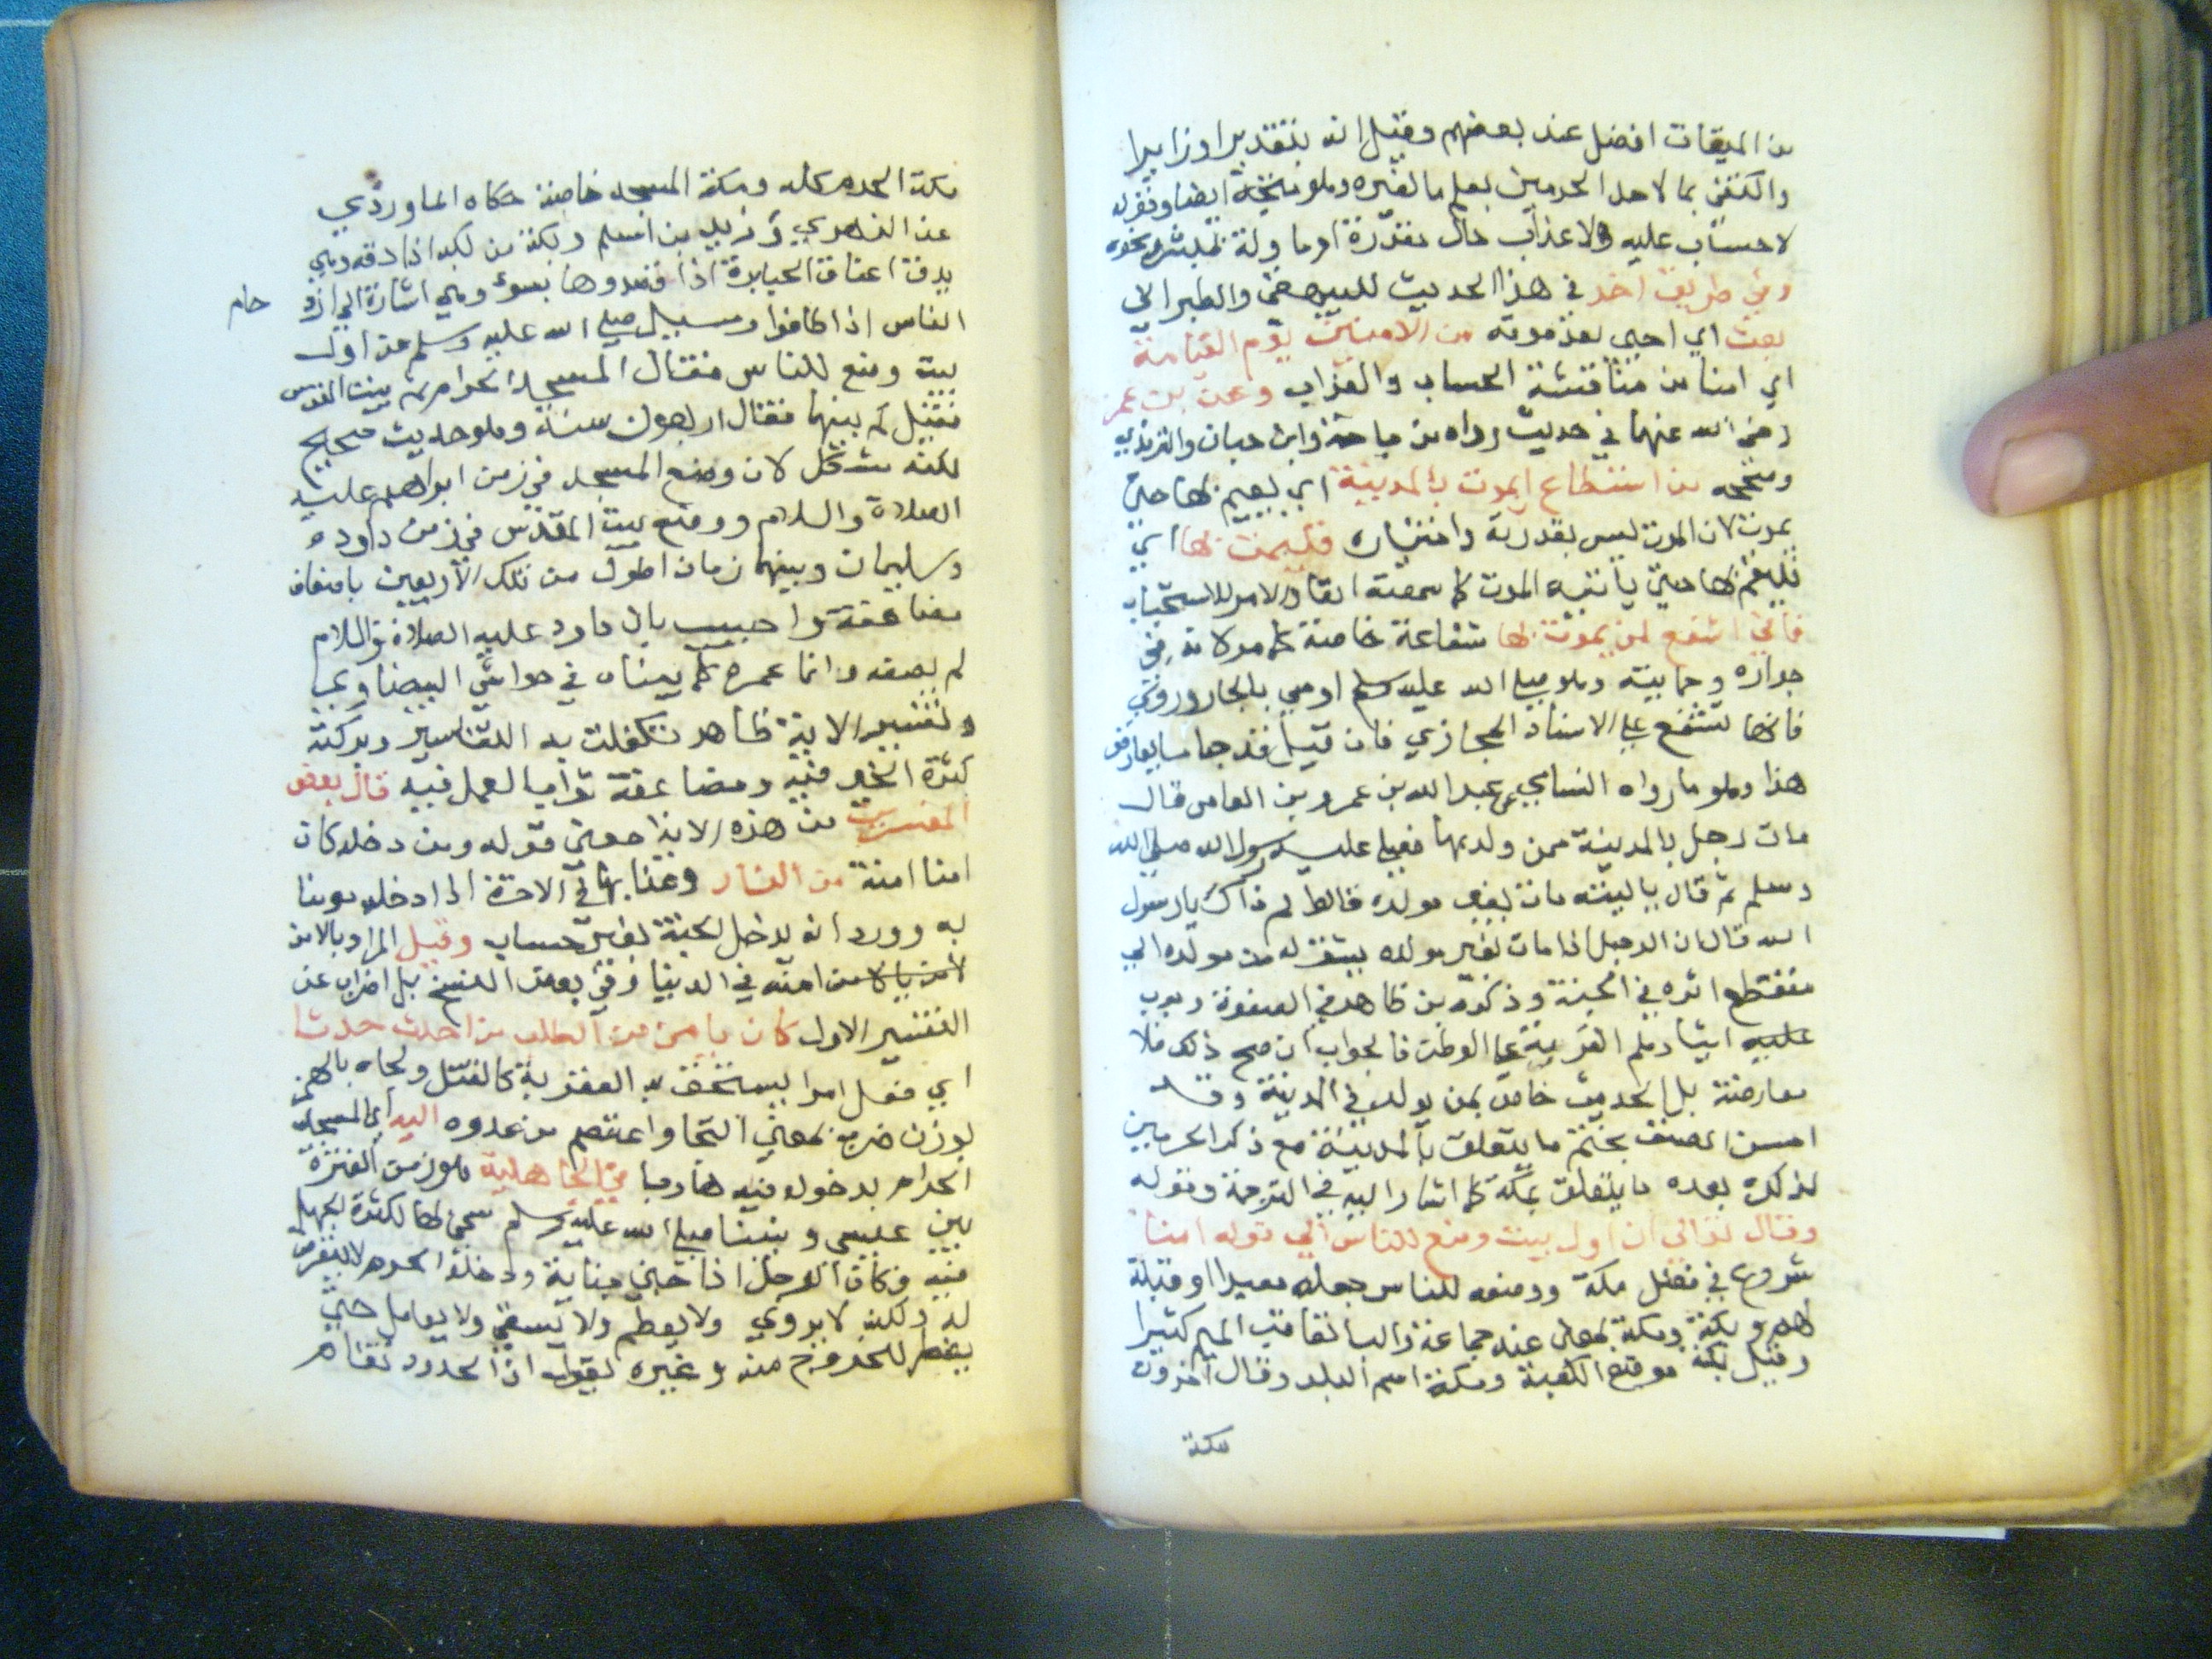 من الميقات افضل عند بعضهم وقيل انه بتقدير او زايرا
والكتفي بما لاحد الحرمين يعلم ما لغيره وهو نتيجة ايضا وقوله
لا حساب عليه ولا عذاب حال مقدرة او ماولة كمبشر ونحوه
وفي طريق اخر في هذا الحديث للبيهقي والطبراني
بعث اي احيي بعد موته من الامنين يوم القيامة
اي امنا من مناقشة الحساب والعذاب وعن بن عمر
رضي الله عنهما في حديث رواه بن ماجة وابن حبان والترمذي
وصححه من استطاع ايموت بالمدينة اي يقيم بها حتى
يموت لان الموت ليس بقدرته واختياره فليمت بها اي
فليقم بها حتى ياتيه الموت كما سمعته انفا والامر للاستحباب
فاني اشفع لمن يموت بها شفاعة خاصة كما مر لانه في
جواره وحمايته وهو صلي الله عليه وسلم اوصي بالجار وروي
فانها تشفع علي الاسناد المجازي فان قيل قد جا ما يعارض
هذا وهو ما رواه النسايي عن عبد الله بن عمرو بن العاص قال
مات رجل بالمدينة ممن ولد بها فصلي عليه رسول الله صلي الله
وسلم ثم قال يا ليته مات بغير مولده قالوا لم ذاك يا رسول
الله قال ان الرجل اذا مات بغير مولده قيس له من مولده الي
منقطع اثره في الجنة وذكره بن طاهر في الصفوة وبوب
عليه ايثارهم الغربة علي الوطن فالجواب ان صح ذلك فلا
معارضة بل الحديث خاص بمن يولد في المدينة وقد
احسن المصنف بختم ما يتعلق بالمدينة مع ذكر الحرمين
لذكره بعده ما يتعلق بمكة كما اشار اليه في الترجمة وقوله
وقال تعالي ان اول بيت وضع للناس الي قوله امنا
شروع في فضل مكة ووضعه للناس جعله معبدا او قبلة
لهم وبكة ومكة بمعني عند جماعة والبا تعاقب الميم كثيرا
وقيل بكة موضع الكعبة ومكة اسم البلد وقال اخرون
مكة
مكة الحرم كله وبكة المسجد خاصة حكاه الماوردي
عن الزهري وزيد بن اسلم وبكة من لبكه اذا دقه وهي
يدق اعناق الجبابرة اذا قصدوها بسوء وهي اشارة الي ازد
حام
الناس اذا طافوا وسيل صلي الله عليه وسلم عن اول
بيت وضع للناس فقال المسجد الحرام ثم بيت المقدس
فقيل كم بينهما فقال اربعون سنة وهو حديث صحيح
لكنه مشكل لان وضع المسجد في زمن ابراهيم عليه
الصلاة والسلام ووضع بيت المقدس في زمن داود
وسليمان وبينهما زمان اطول من تلك الاربعين باضعاف
مضاعفة واجيب بان داود عليه الصلاة والسلام
لم يضعه وانما عمره كما بيناه في حواشي البيضاوي
وتفسير الاية ظاهر تكفلت به التفاسير وبركته
كثرة الخير فيه ومضاعفة ثواب العمل فيه قال بعض
المفسرين من هذه الاية معني قوله ومن دخله كان
امنا امنة من النار وعذابها في الاخرة اذا دخله مومنا
به وورد انه يدخل الجنة بغير حساب وقيل المراد بالامن
لامن بالامن امنه في الدنيا وفي بعض النسخ بل اضراب عن
التفسير الاول كان يامن من الطلب من احدث حدثا
اي فعل امرا يستحق به العقوبة كالقتل ولجاه بالهمز
بوزن ضرب بمعني التجا واعتصم من عدوه اليه اي المسجد
الحرام بدخوله فيه هاربا في الجاهلية وهو زمن الفترة
بين عيسي ونبينا صلي الله عليه وسلم سمي بها لكثرة الجهل
فيه وكان الرجل اذا جني جناية ودخل الحرم لا يتعرض
له ولكن لا يروي ولا يطعم ولا يسقي ولا يعامل حتي
يضطر للخروج منه وغيره يقول ان الحدود تقام